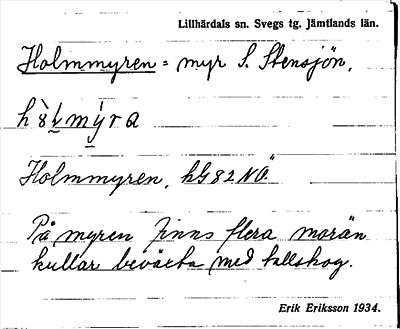 Lillhärdals sn. Svegs tg. Jämtlands län.
Holmmyren = myr S. Stensjön.
Holmmyren, hG82NÖ
På myren finns flera morän
kullar beväxta med tallskog.
Erik Eriksson 1934.